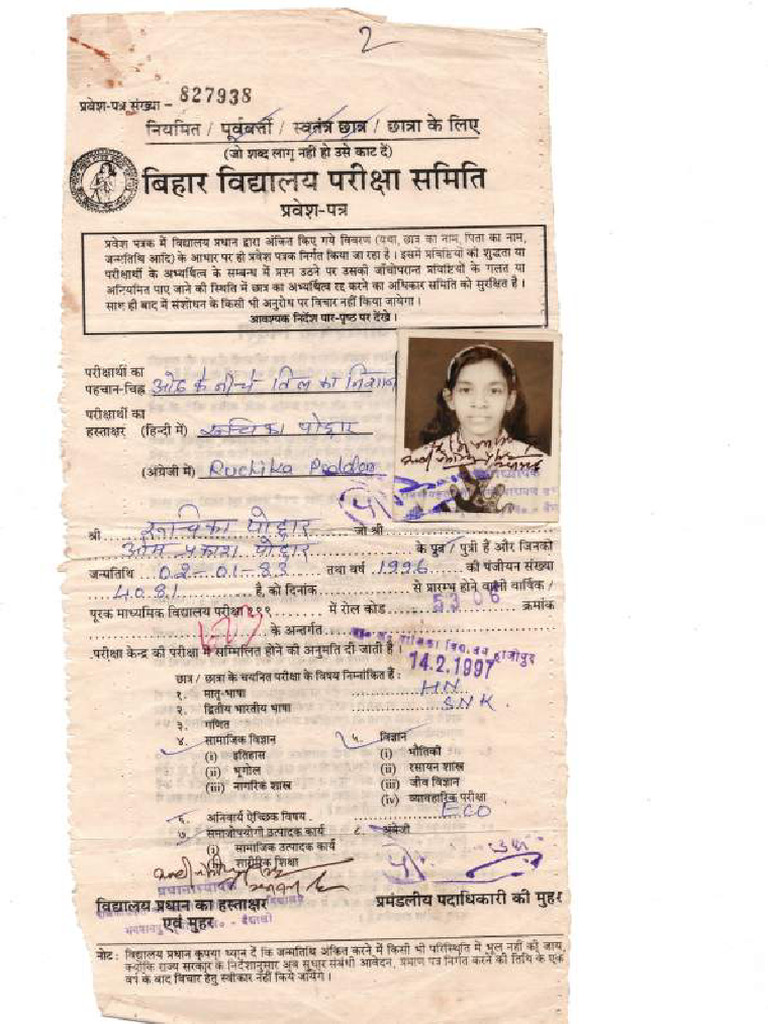 2
प्रवेश-पत्र संख्या - 827938
नियमित / पूर्ववर्त्ती / स्वतंत्र छात्र / छात्रा के लिए
(जो शब्द लागू नहीं हो उसे काट दें)
बिहार विद्यालय परीक्षा समिति
प्रवेश-पत्र
प्रवेश पत्रक में विद्यालय प्रधान द्वारा अंकित किए गये विवरण (यथा, छात्र का नाम, पिता का नाम,
जन्मतिथि आदि) के आधार पर ही प्रवेश पत्रक निर्गत किया जा रहा है। इसमें प्रविष्टियों की शुद्धता या
परीक्षार्थी के अभ्यर्थित्व के सम्बन्ध में प्रश्न उठने पर उसकी जाँचोपरान्त प्रविष्टियों के गलत या
अनियमित पाए जाने की स्थिति में छात्र का अभ्यर्थित्व रद्द करने का अधिकार समिति को सुरक्षित है।
साथ ही बाद में संशोधन के किसी भी अनुरोध पर विचार नहीं किया जायेगा।
आवश्यक निर्देश पार-पृष्ठ पर देखें।
परीक्षार्थी का
पहचान-चिह्न ओठ के नीचे तिल का निशान
परीक्षार्थी का
हस्ताक्षर (हिन्दी में) रूचिका पोद्दार
(अंग्रेजी में) Ruchika Poddar
श्री रूचिका पोद्दार जो श्री
ओम प्रकाश पोद्दार के पुत्र / पुत्री हैं और जिनकी
जन्मतिथि 02-01-83 तथा वर्ष 1996 की पंजीयन संख्या
4081 है, को दिनांक से प्रारम्भ होने वाली वार्षिक /
पूरक माध्यमिक विद्यालय परीक्षा १९९ में रोल कोड 5306 क्रमांक
के अन्तर्गत
परीक्षा केन्द्र की परीक्षा में सम्मिलित होने की अनुमति दी जाती है।
14.2.1997
छात्र / छात्रा के चयनित परीक्षा के विषय निम्नांकित हैं :
१. मातृ-भाषा HN
२. द्वितीय भारतीय भाषा SNK
३. गणित
४. सामाजिक विज्ञान
(i) इतिहास
(ii) भूगोल
(iii) नागरिक शास्त्र
५. विज्ञान
(i) भौतिकी
(ii) रसायन शास्त्र
(iii) जीव विज्ञान
(iv) व्यावहारिक परीक्षा
६. अनिवार्य ऐच्छिक विषय ECO
७. समाजोपयोगी उत्पादक कार्य
८. अंग्रेजी
(i) सामाजिक उत्पादक कार्य
शारीरिक शिक्षा
विद्यालय प्रधान का हस्ताक्षर
एवं मुहर
प्रमंडलीय पदाधिकारी की मुहर
नोट : विद्यालय प्रधान कृपया ध्यान दें कि जन्मतिथि अंकित करने में किसी भी परिस्थिति में भूल नहीं की जाय,
क्योंकि राज्य सरकार के निर्देशानुसार अब सुधार संबंधी आवेदन, प्रमाण पत्र निर्गत करने की तिथि के एक
वर्ष के बाद विचार हेतु स्वीकार नहीं किये जायेंगे।